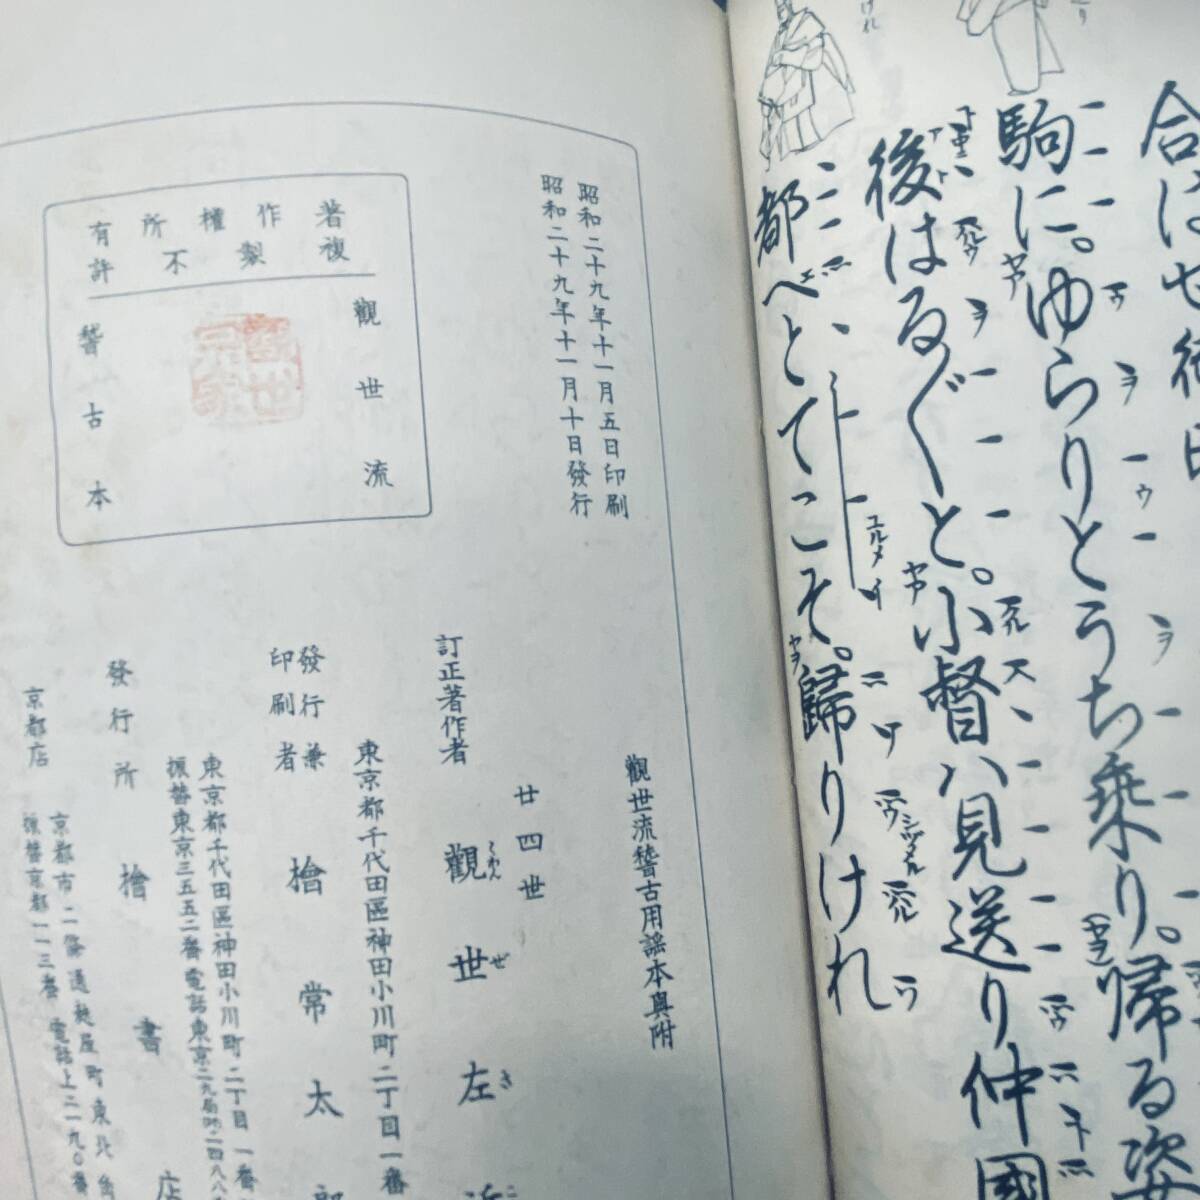 合はせ
駒に。ゆらりとうち乗り。帰る姿
後はるぐと。小督ハ見送り仲國
都べとてこそ。歸りけれ
著作權所有
複製不許
觀世流
稽古本
昭和二十九年十一月五日印刷
昭和二十九年十一月十日發行
觀世流稽古用謠本奥附
廿四世
訂正著作者 觀世左近
東京都千代田區神田小川町二丁目一番
發行兼
印刷者 檜常太郎
東京都千代田區神田小川町二丁目一番
振替東京三五五二番
發行所 檜書店
京都店 京都市二條通麩屋町東北角